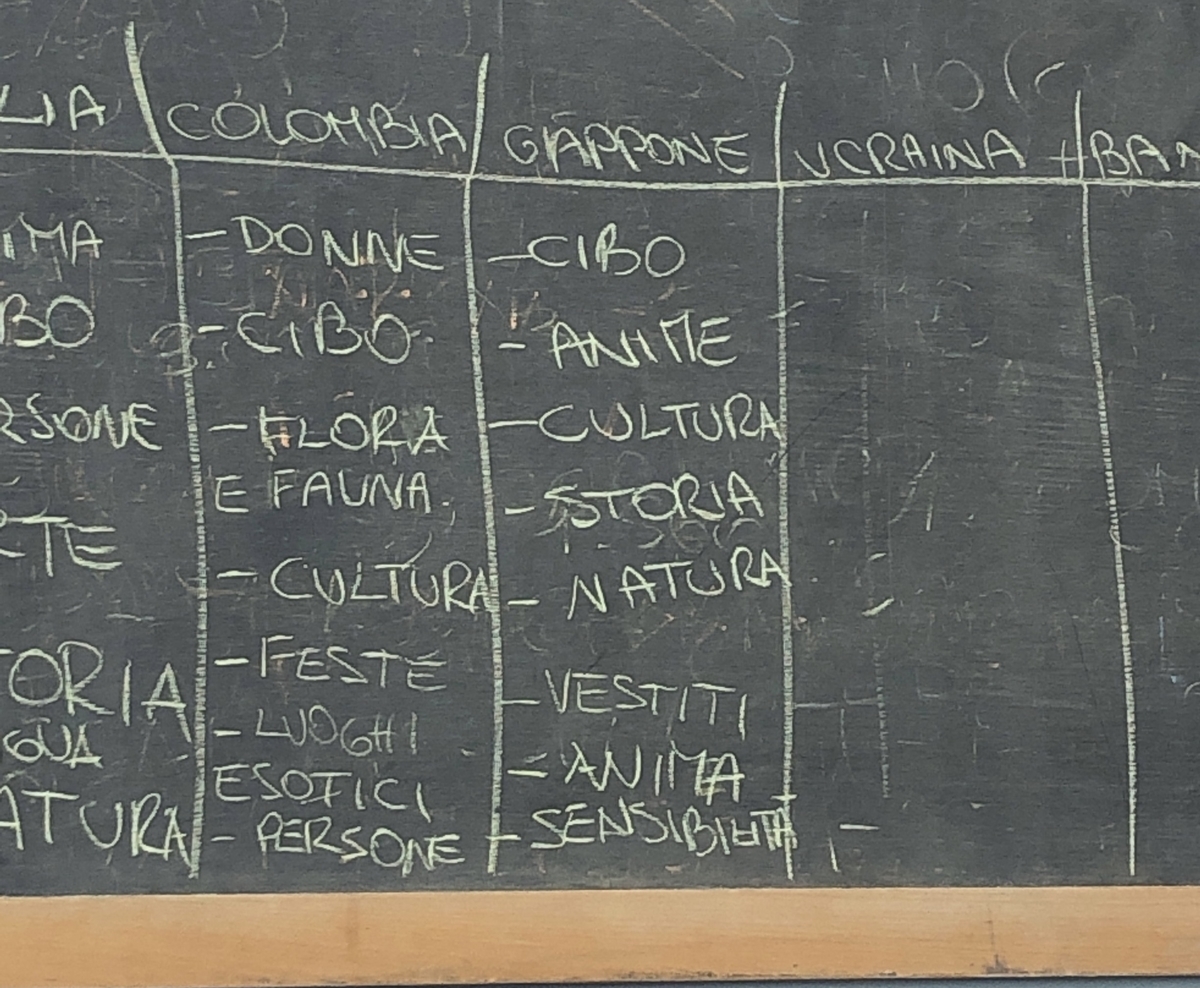 LIA
COLOMBIA
GIAPPONE
UCRAINA
BAN
IMA
BO
RSONE
TE
TORIA
GUA
ATURA
- DONNE
- CIBO
- FLORA
E FAUNA
- CULTURA
- FESTE
- LUOGHI
ESOTICI
- PERSONE
- CIBO
- ANIME
- CULTURA
- STORIA
- NATURA
- VESTITI
- ANIMA
- SENSIBILITÀ
-